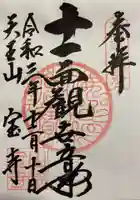 奉拝
十一面觀世音
令和三年十一月十日
天王山
宝寺